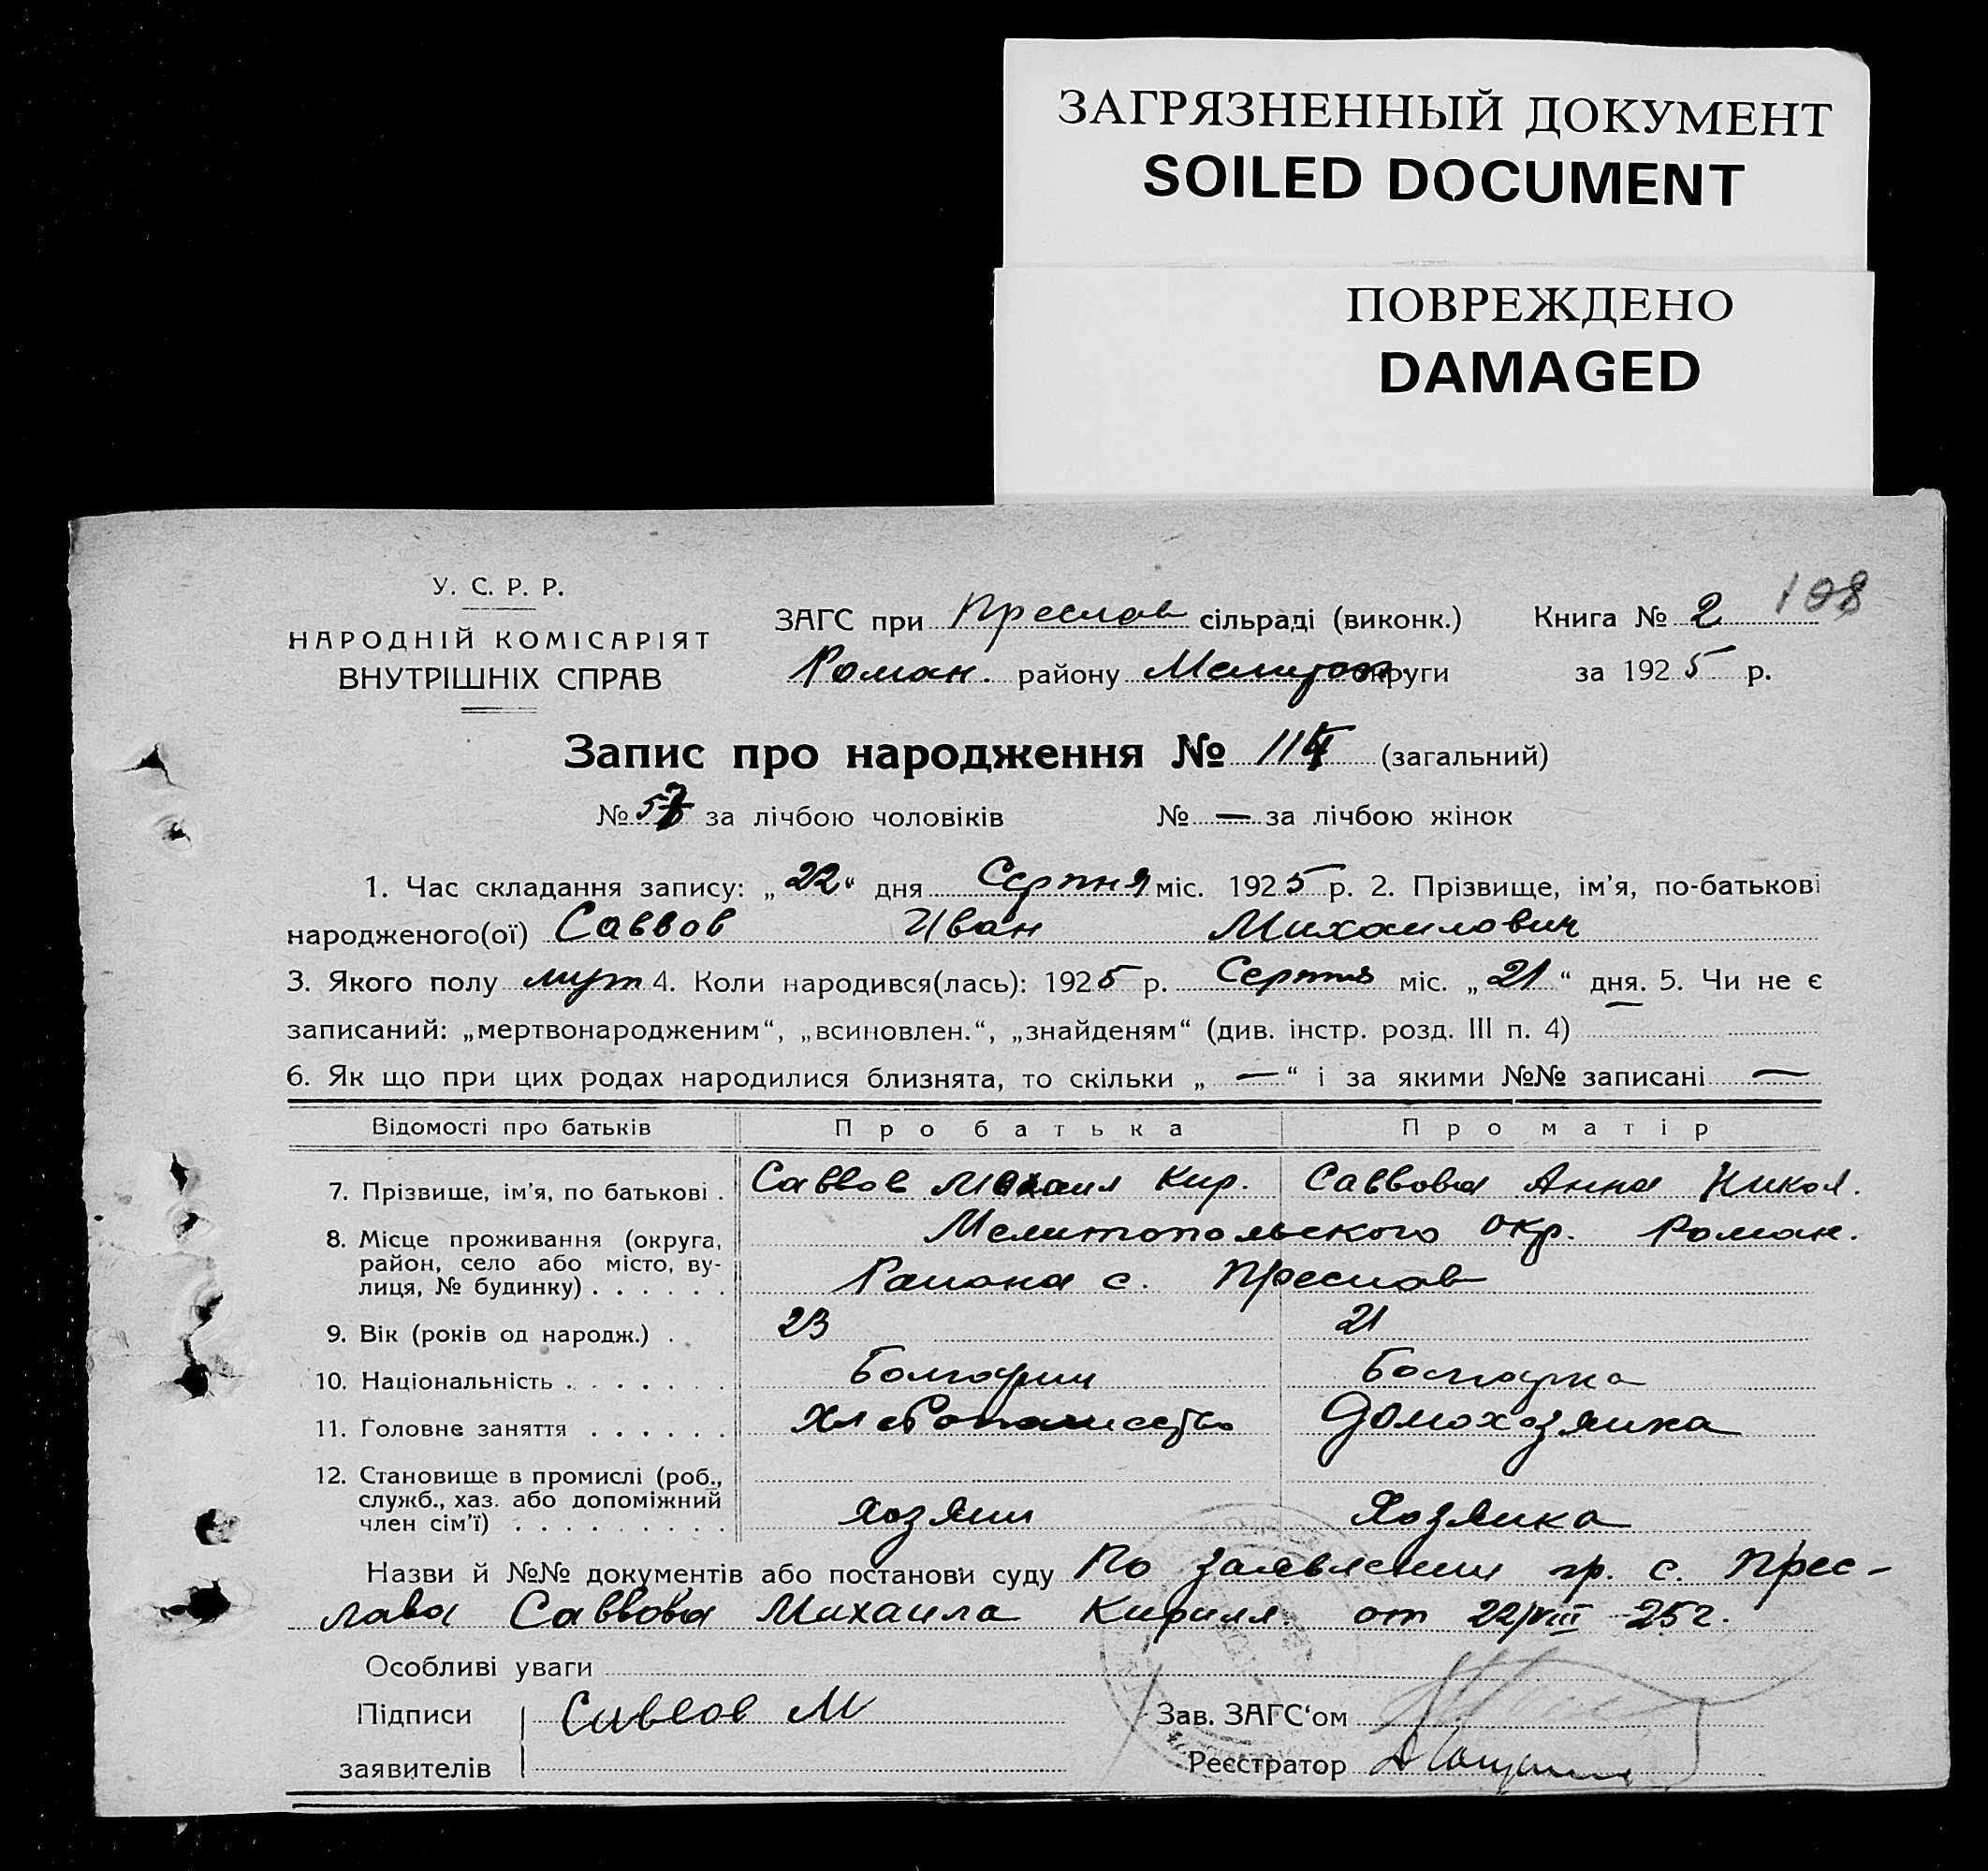 ЗАГРЯЗНЕННЫЙ ДОКУМЕНТ
SOILED DOCUMENT
ПОВРЕЖДЕНО
DAMAGED
108
У. С. Р. Р.
НАРОДНІЙ КОМІСАРІЯТ
ВНУТРІШНІХ СПРАВ
ЗАГС при Преслав сільраді (виконк.) Книга № 2
Роман. району Мелитоп округи за 1925 р.
Запис про народження № 114 (загальний)
№ 57 за лічбою чоловіків № — за лічбою жінок
1. Час складання запису: „22“ дня Серпня міс. 1925 р. 2. Прізвище, ім'я, по-батькові
народженого(ої) Саввов Иван Михаилович
3. Якого полу муж 4. Коли народився(лась): 1925 р. Серпня міс. „21“ дня. 5. Чи не є
записаний: „мертвонародженим“, „всиновлен.“, „знайденям“ (див. інстр. розд. III п. 4) —
6. Як що при цих родах народилися близнята, то скільки „—“ і за якими №№ записані —
Відомості про батьків Про батька Про матір
7. Прізвище, ім'я, по батькові . Саввов Михаил Кир. Саввова Анна Никол.
8. Місце проживання (округа, Мелитопольского окр. Роман.
район, село або місто, ву-
лиця, № будинку) . . . . . . Района с. Преслав
9. Вік (років од народж.) . 23 21
10. Національність . . . . . . . Болгарин Болгарка
11. Головне заняття . . . . . . Хлебопашество Домохозяйка
12. Становище в промислі (роб.,
служб., хаз. або допоміжний
член сім'ї) . . . . . . . . . Хозяин Хозяйка
Назви й №№ документів або постанови суду По заявлении гр. с. Прес-
лава Саввова Михаила Кирилл. от 22/VIII 25 г.
Особливі уваги
Підписи Саввов М Зав. ЗАГС'ом
заявителів Реєстратор